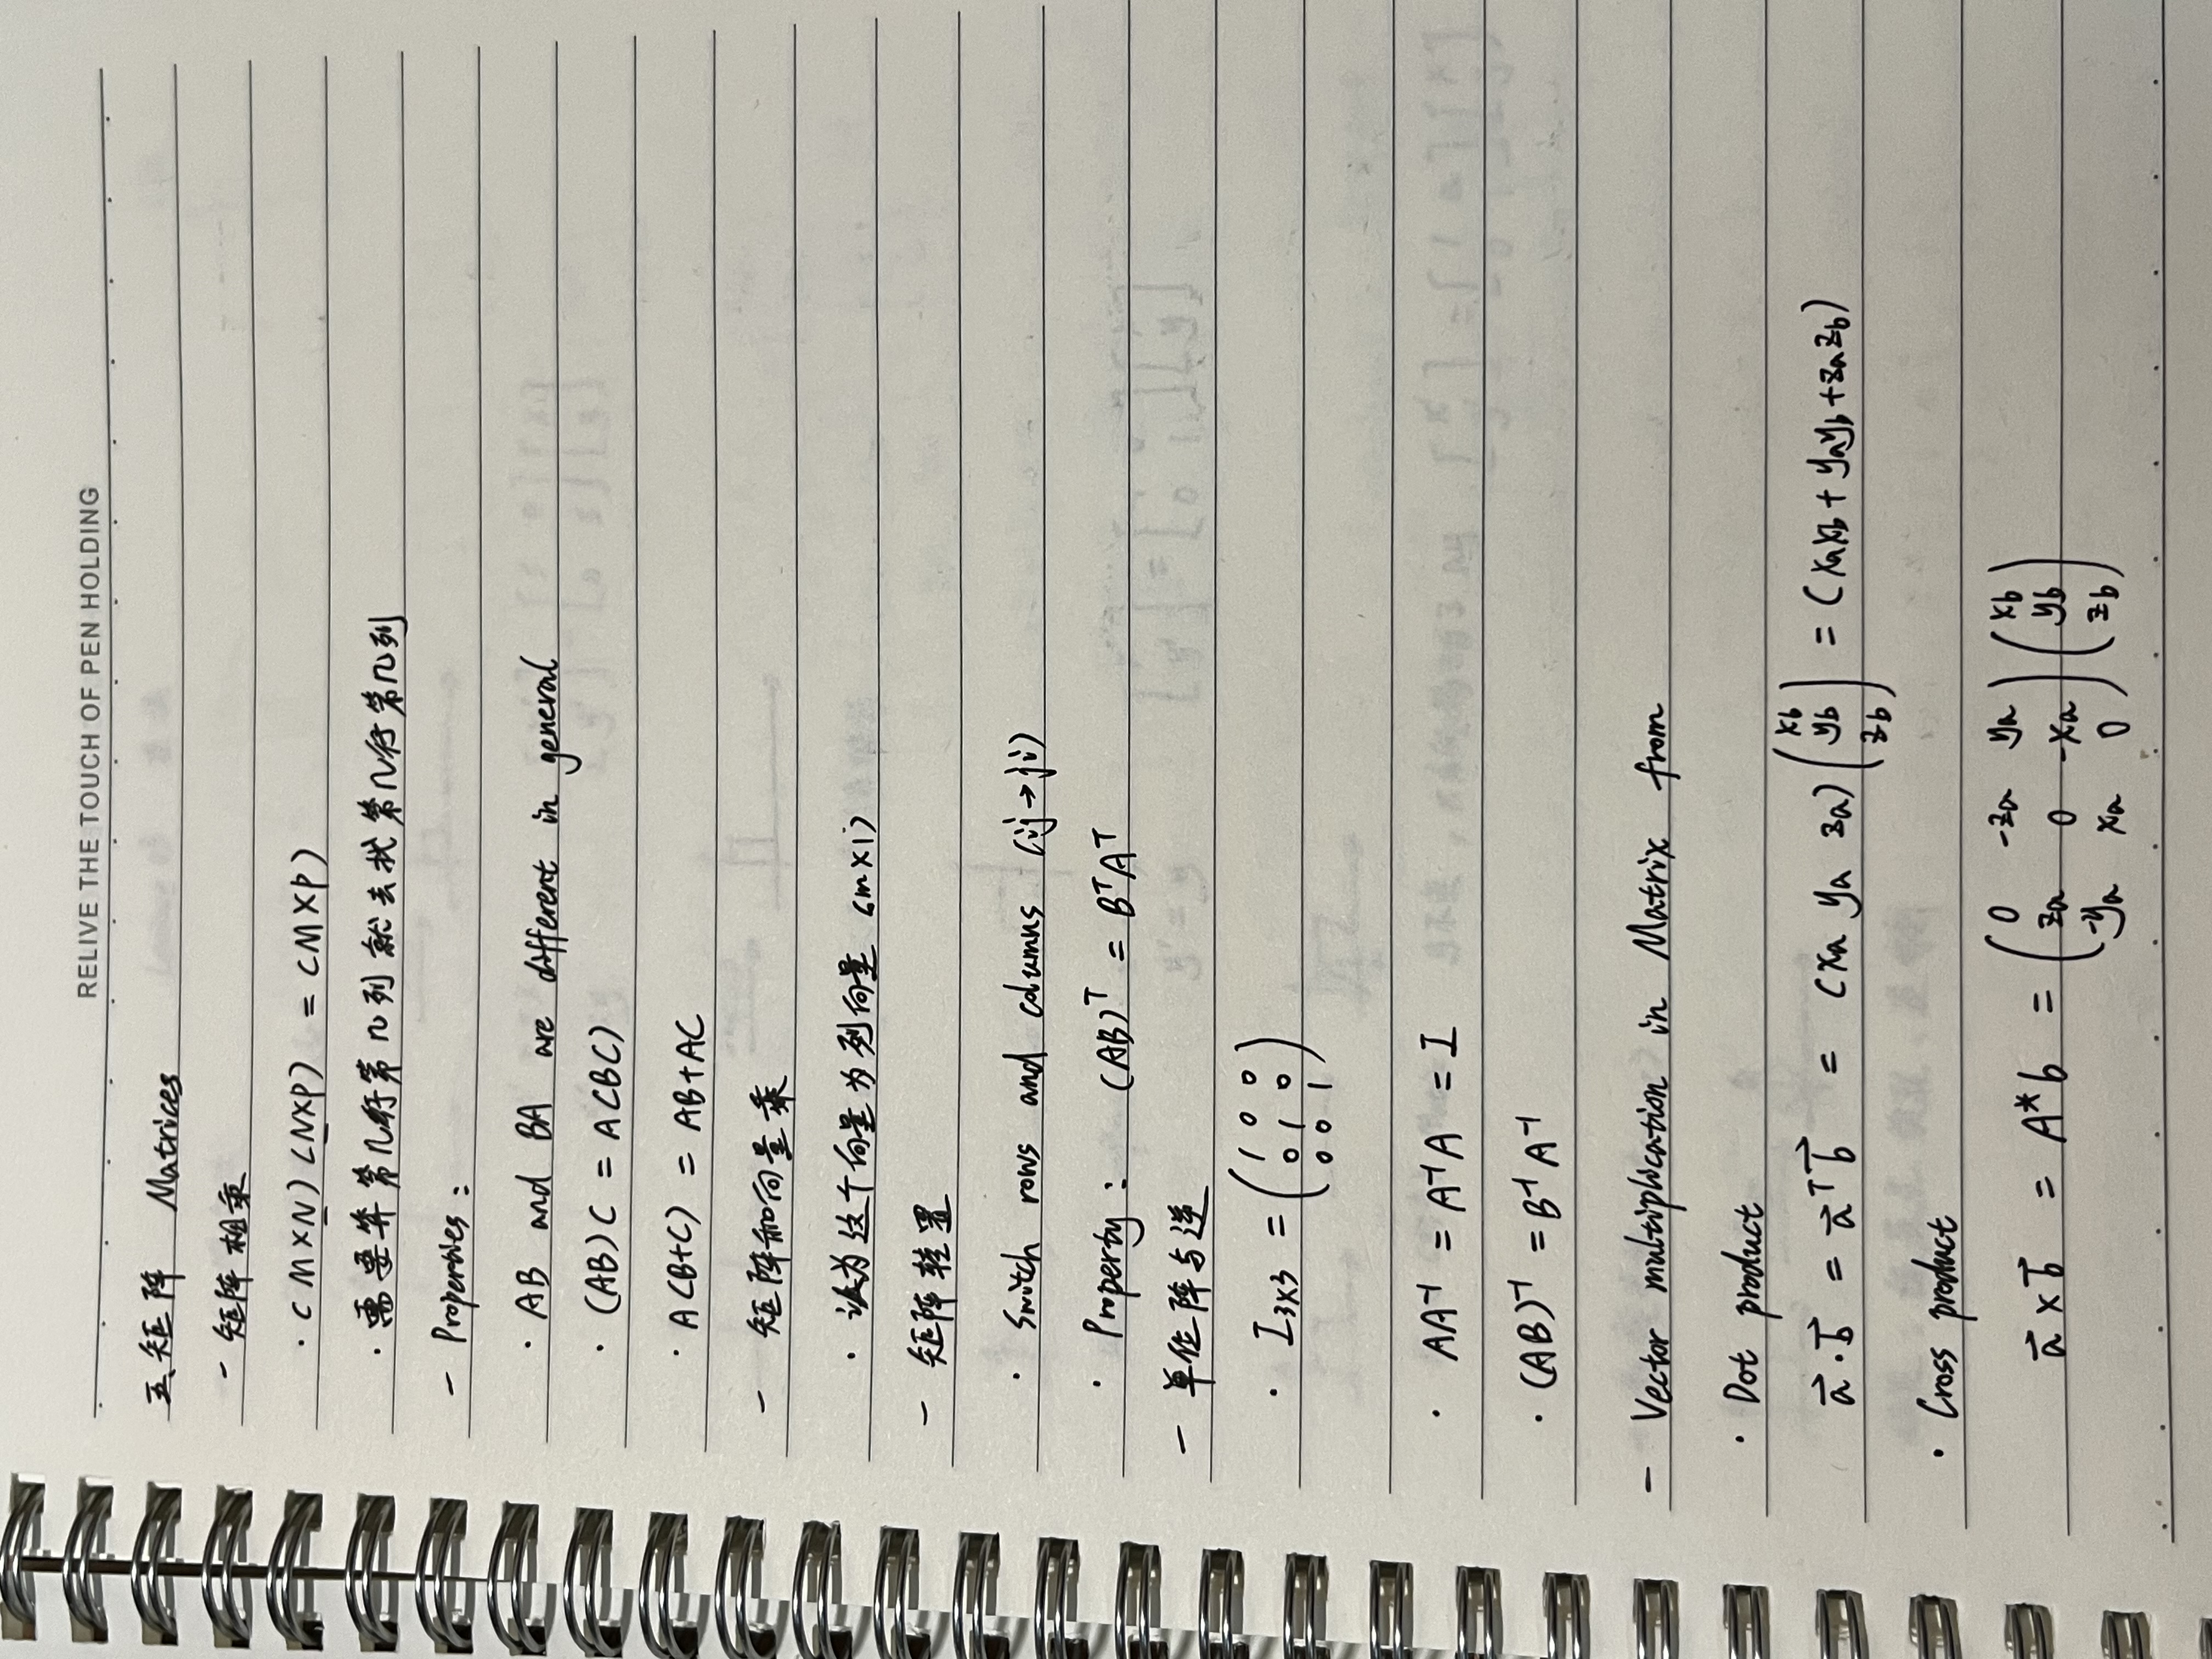 RELIVE THE TOUCH OF PEN HOLDING
五、矩阵 Matrices
- 矩阵相乘
· (M×N)(N×P) = (M×P)
· 需要算第几行第几列就去找第几行第几列
- Properties:
· AB and BA are different in general
· (AB)C = A(BC)
· A(B+C) = AB+AC
- 矩阵和向量乘
· 认为这个向量为列向量 (m×1)
- 矩阵转置
· Switch rows and columns (ij→ji)
· Property: (AB)ᵀ = BᵀAᵀ
- 单位阵与逆
· I₃ₓ₃ = (1 0 0
0 1 0
0 0 1)
· AA⁻¹ = A⁻¹A = I
· (AB)⁻¹ = B⁻¹A⁻¹
- Vector multiplication in Matrix from
· Dot product
a⃗·b⃗ = a⃗ᵀb⃗ = (xa ya za)(xb yb zb) = (xaxb + yayb + zazb)
· Cross product
a⃗×b⃗ = A*b = (0 -za ya
za 0 -xa
-ya xa 0)(xb yb zb)